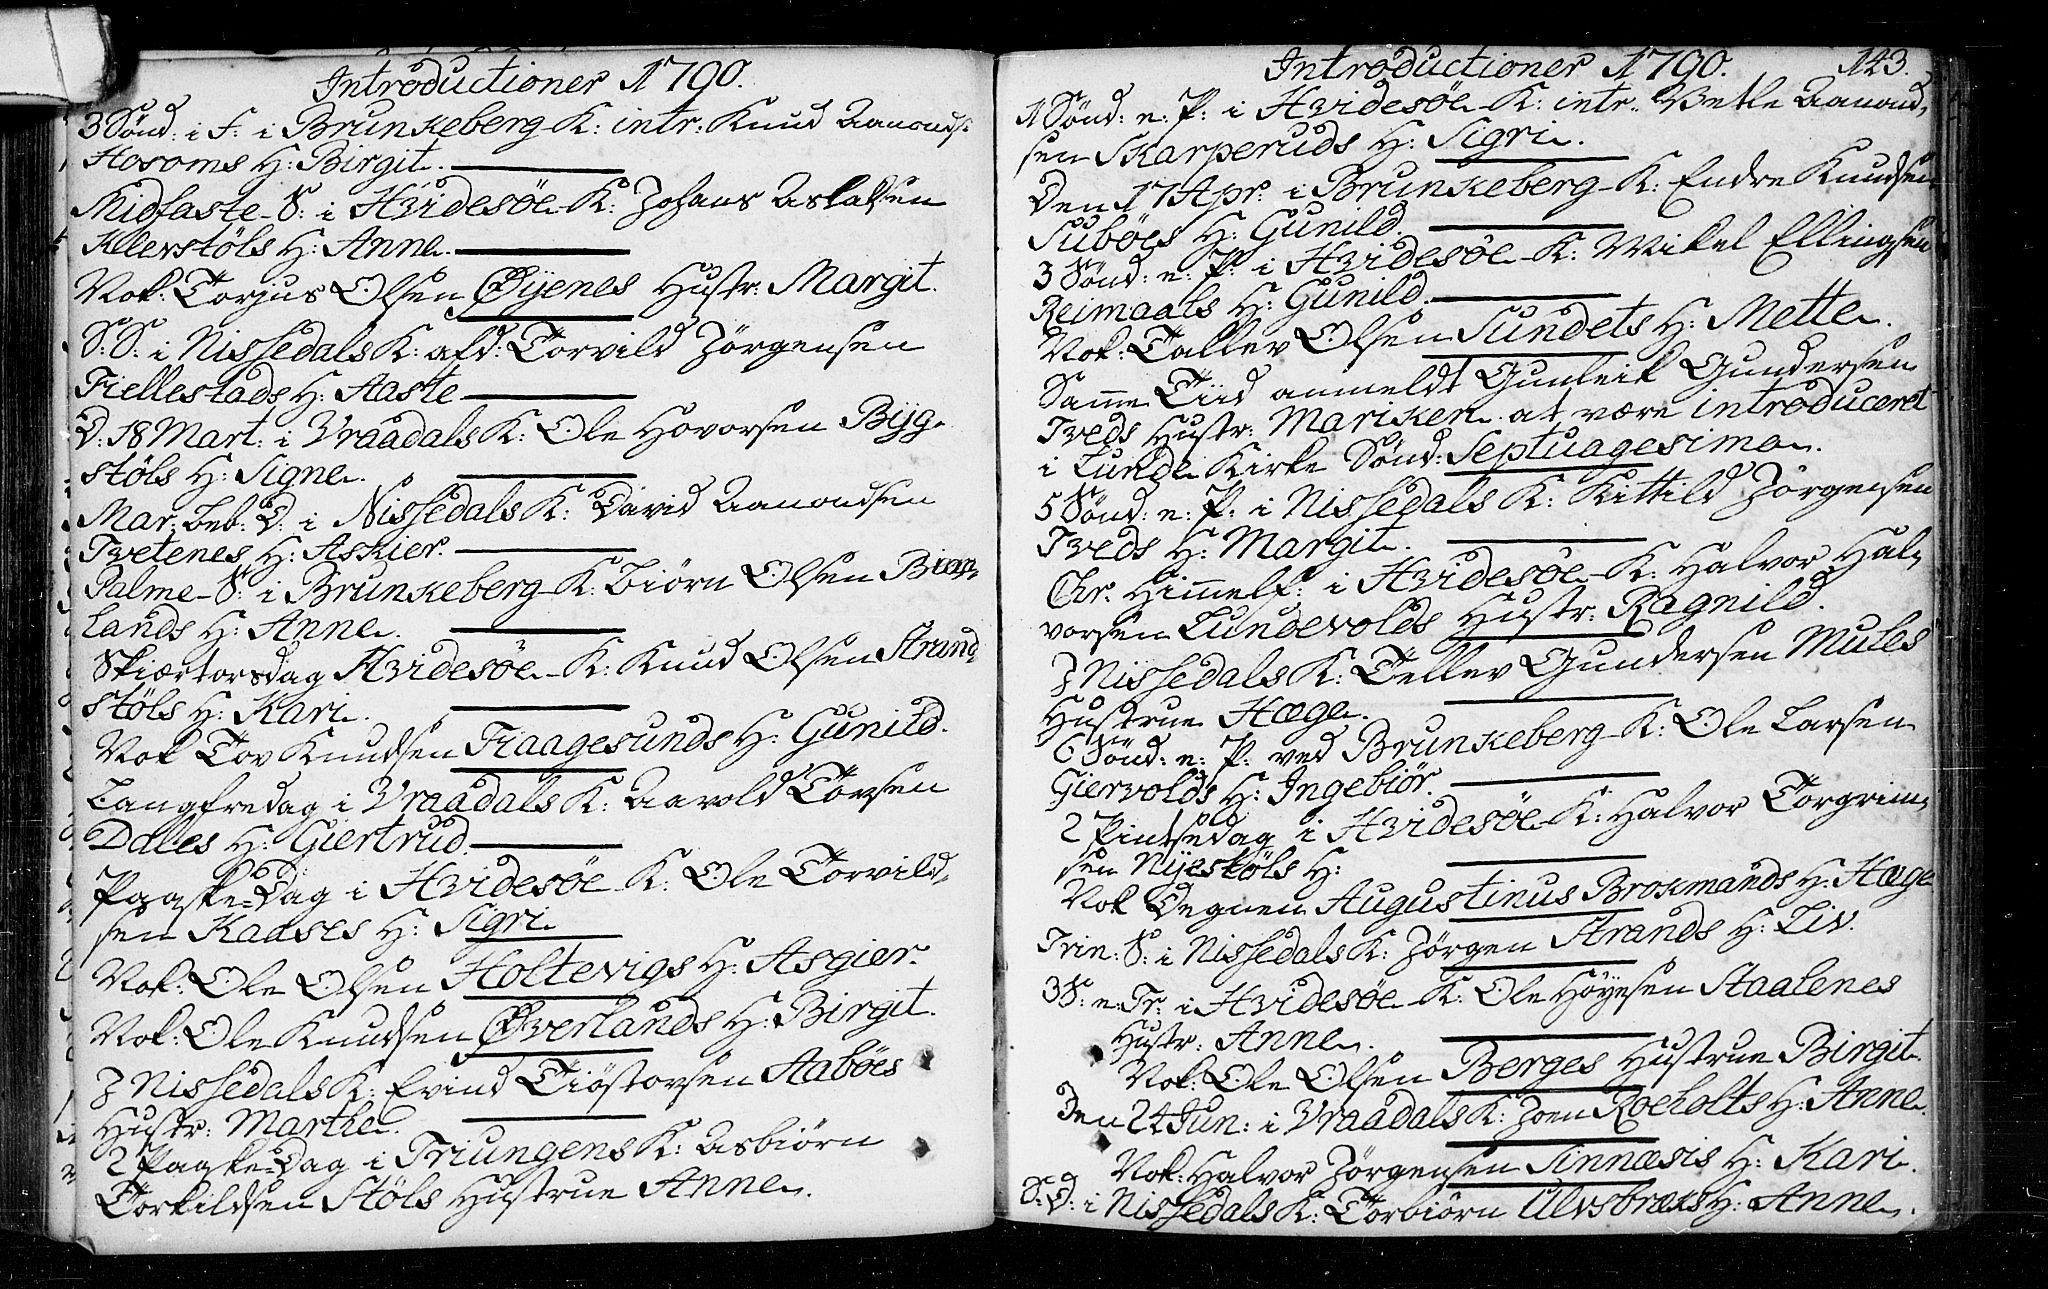 Introductioner 1790.
3 Sønd: i F: i Brunkeberg K: intr: Knud Aanonds:
Hosoms H: Birgit.
Midfaste-S: i Hvidesøe K: Johans Aslaksen
Klevstöls H: Anne.
Nok: Torjus Olsen Øyenes Hustr: Margit.
S: S: i Nissedals K: afd: Torvild Jörgensen
Fiellestads H: Aaste
D: 18 Mart: i Vraadals K: Ole Hovorsen Byg-
stöls H: Signe.
Mar: Beb: D: i Nissedals K: David Aanondsen
Tvetenes H: Askier.
Palme-S: i Brunkeberg K: Biørn Olsen
Lands H: Anne.
Skiærtorsdag Hvidesøe K: Knud Olsen Strand-
stöls H: Kari.
Nok Tov Knudsen Fraagesunds H: Gunild.
Langfredag i Vraadals K: Aavold Tovsen
Dales H: Giertrud.
Paaske-Dag i Hvidesøe K: Ole Torvild-
sen Kaases H: Sigri
Nok: Ole Olsen Holtevigs H: Asgier.
Nok: Ole Knudsen Øverlands H: Birgit.
J Nissedals K: Evind Tiöstovsen Aabøes
Hustr: Marthe.
2 Paaske-Dag i Triungens K: Asbiörn
Torkildsen Stöls Hustrue Anne.
Introductioner 1790. 143.
1 Sønd: e: P: i Hvidesøe K: intr: Vetle Aanond-
sen Skarperuds H: Sigri.
Den 17 Apr: i Brunkeberg K: Endre Knudsen
Subøes H: Gunild.
3 Sønd: e: P: i Hvidesøe K: Mikel Ellingsen
Reimaals H: Gunild.
Nok: Tallev Olsen Sundets H: Mette.
Samme Tiid anmeldt Gunleik Gundersen
Tveds Hustr: Mariken at være introduceret
i Lunde Kirke Sønd: Septuagesima.
5 Sønd: e: P: i Nissedals K: Kittild Jörgensen
Tveds H: Margit.
Chr. Himmelf: i Hvidesøe K: Halvor Hal-
vorsen Lundevolds Hustr: Ragnild.
J Nissedals K: Tellev Gundersen Mules
Hustrue Hæge.
6 Sønd: e: P: ved Brunkeberg K: Ole Larsen
Giervolds H: Ingebiör.
2 Pintsedag i Hvidesøe K: Halvor Torgrim-
sen Nyestöls H:
Nok Degnen Augustinus Brokmands H: Hæge
Trin: S: i Nissedals K: Jörgen Strands H: Liv.
3 S: e: Tr: i Hvidesøe K: Ole Höyesen Staalenes
Hustr: Anne.
Nok: Ole Olsen Berges Hustrue Birgit.
Den 24 Jun: i Vraadals K: Joen Roeholts H: Anne.
Nok: Halvor Jörgensen Sinnæsis H: Kari.
S: D: i Nissedals K: Torbiörn Ulvsbræks H: Anne.